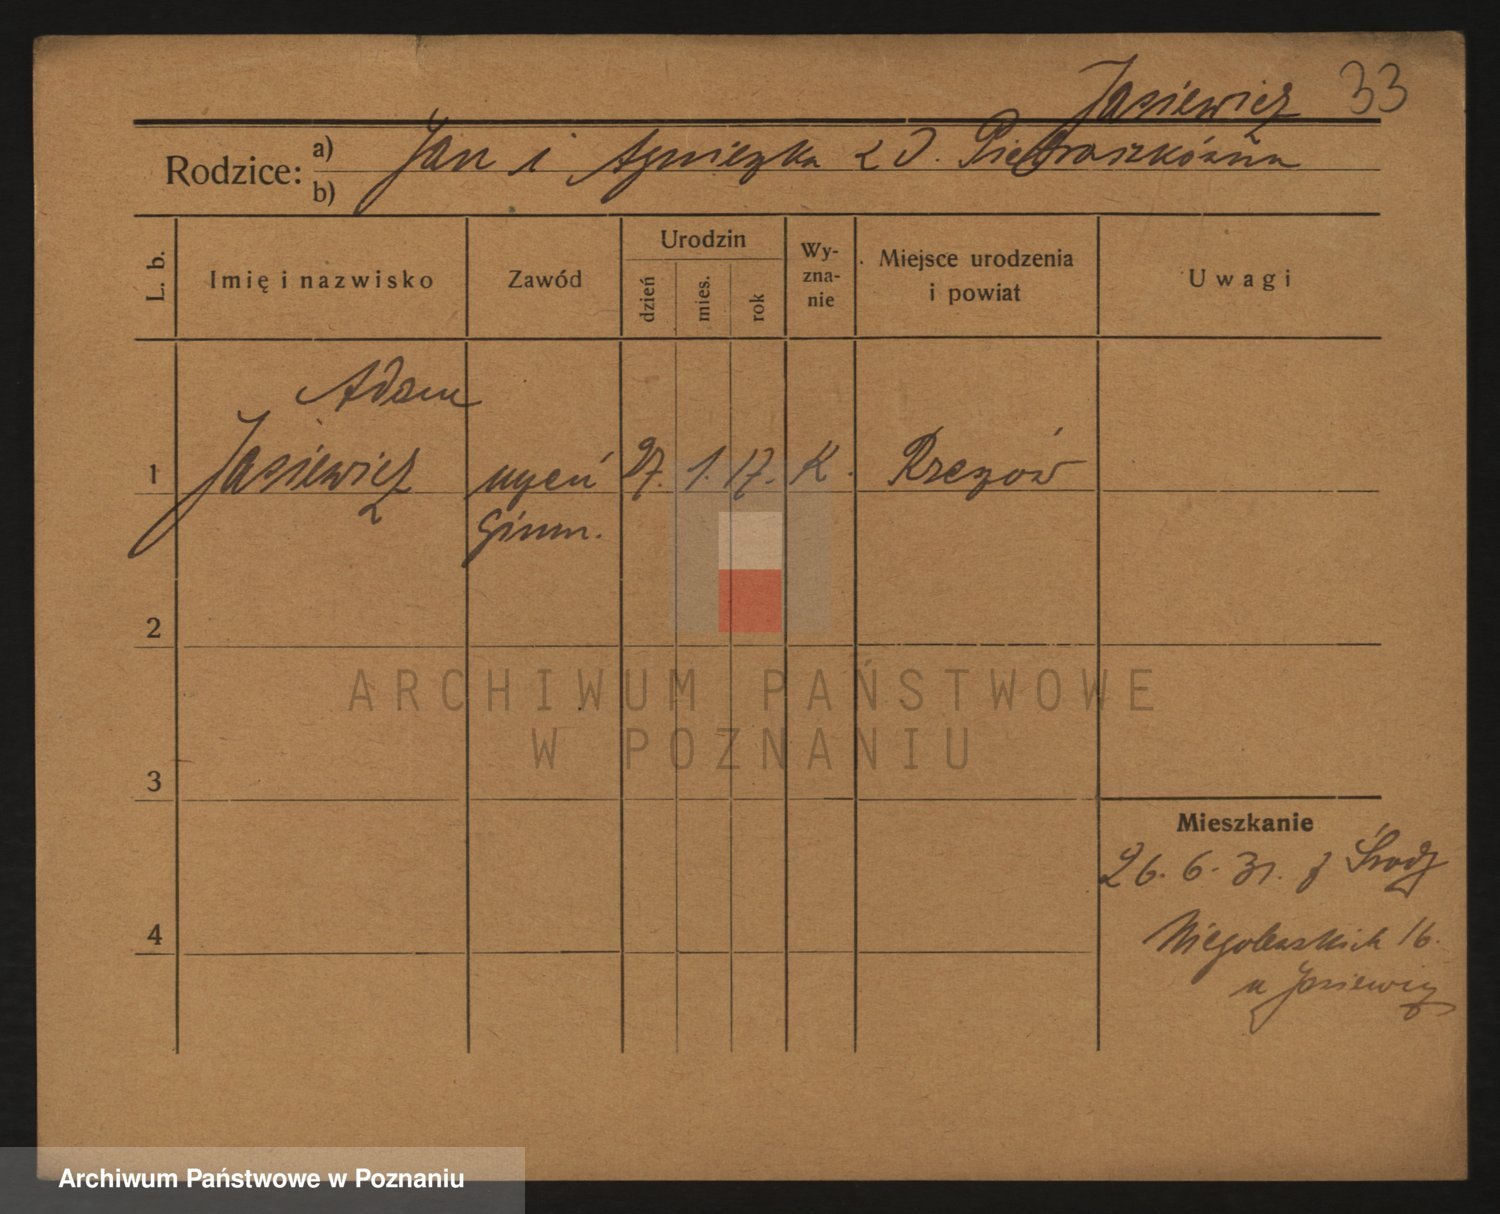 Jasiewicz 33
Rodzice: a) Jan i Agnieszka z d.
b)
L. b.
Imię i nazwisko
Zawód
Urodzin
dzień
mies.
rok
Wy-
zna-
nie
Miejsce urodzenia
i powiat
Uwagi
Adam
1 Jasiewicz uczeń 27. 1. 17. K.
Gimn.
2
3
4
Mieszkanie
26. 6. 31. z
Niegolewskich 16.
u Jasiewicz
ARCHIWUM PAŃSTWOWE
W POZNANIU
Archiwum Państwowe w Poznaniu